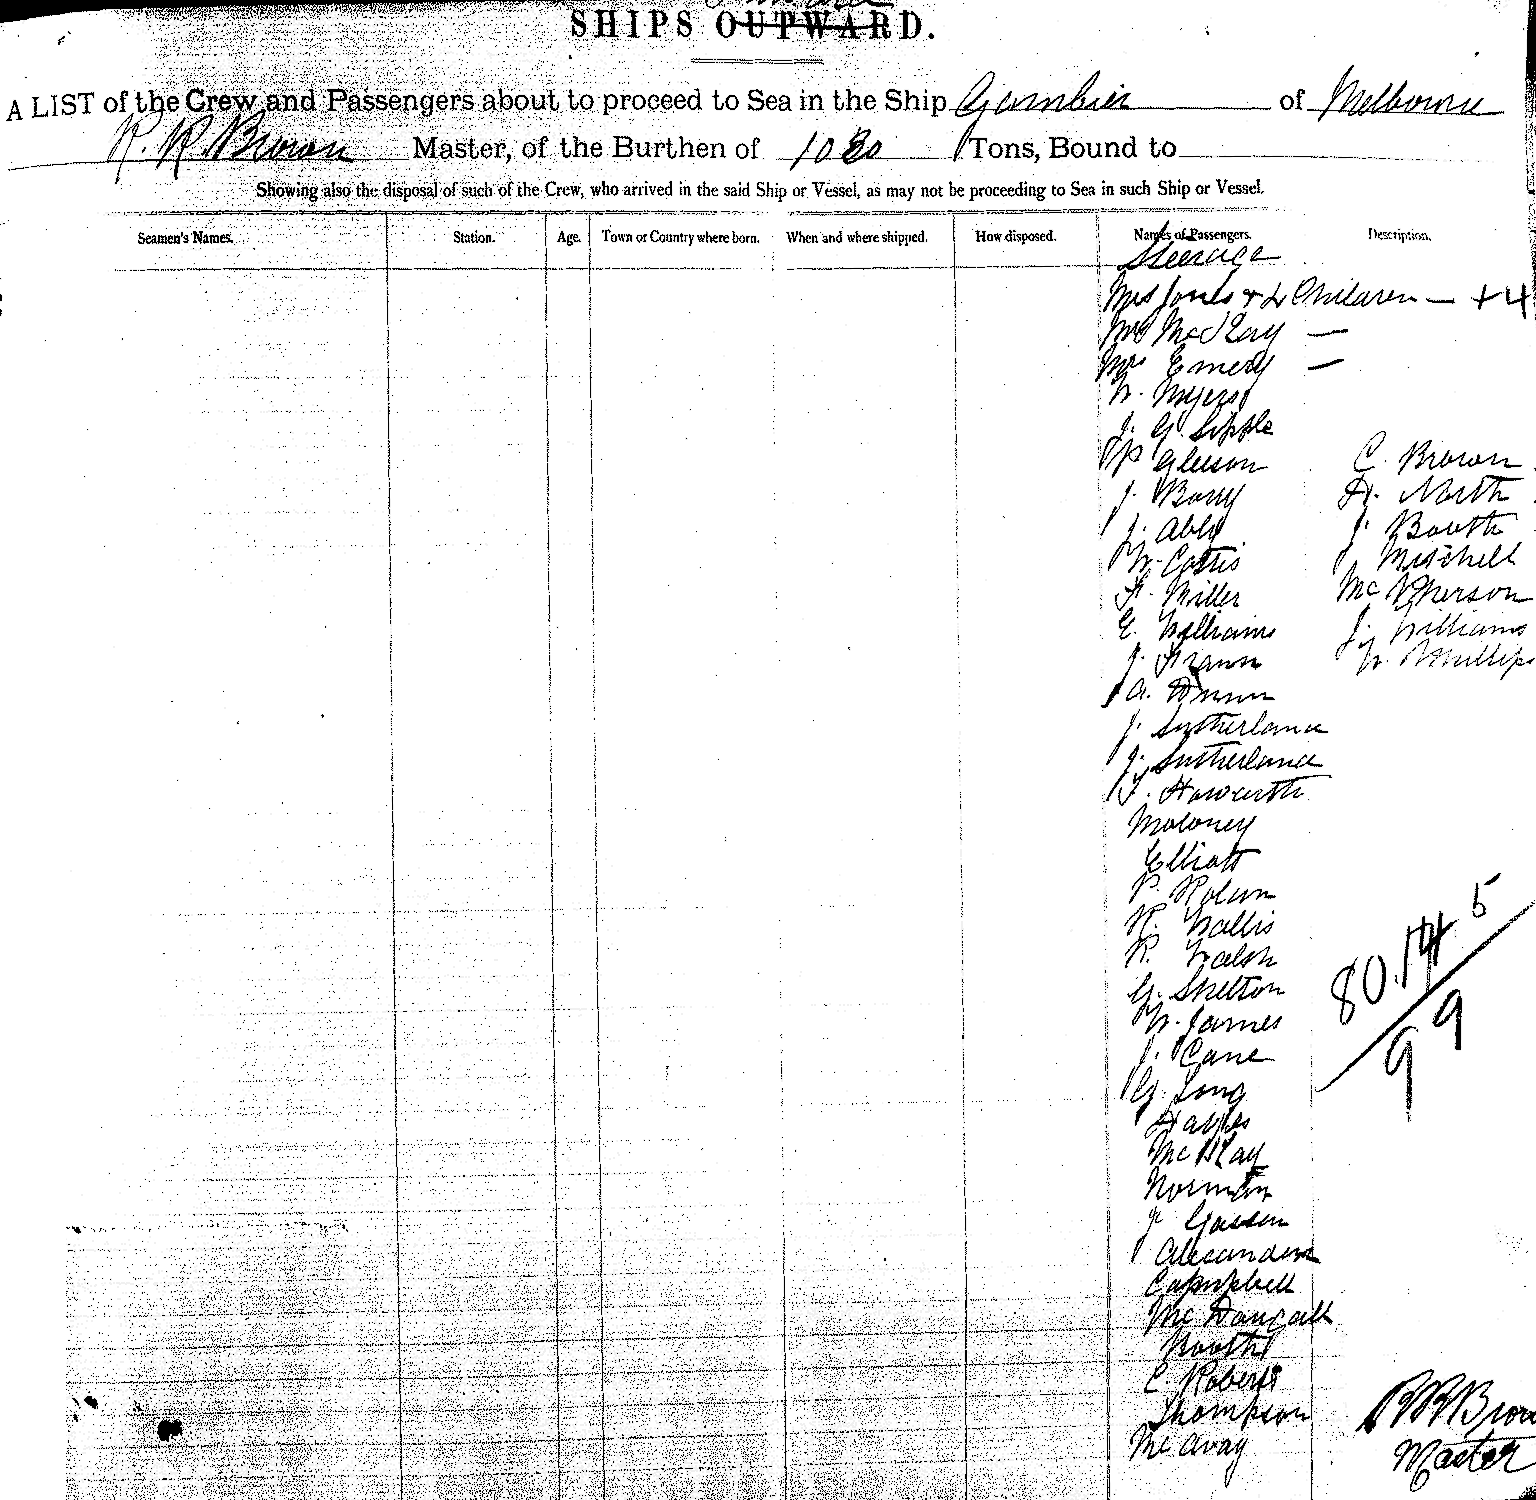 SHIPS OUTWARD.
A LIST of the Crew and Passengers about to proceed to Sea in the Ship Gambier of Melbourne
R. R. Brown Master, of the Burthen of Tons, Bound to
Showing also the disposal of such of the Crew, who arrived in the said Ship or Vessel, as may not be proceeding to Sea in such Ship or Vessel.
Seamen's Names. Station. Age. Town or Country where born. When and where shipped. How disposed. Names of Passengers. Description.
Steerage
Mrs Jones + Children — +4
McKay —
Mrs Emery —
W. Myers
J. G. Sipple
P Gleeson
J. Barry
J. Abby
W.
F. Miller
E. Williams
J.
A.
J. Sutherland
J. Sutherland
T. Howarth
Moloney
Elliott
P. Nolan
R. Wallis
R. Walsh
G. Skelton
W. James
J. Cane
G. Long
Hayes
McKay
Norman
J
Alexander
Campbell
McDougall
Booth
C Roberts
Thompson
McAvay
C. Brown
H. North
J. Booth
J Mitchell
McPherson
J. Williams
W. Phillips
80.
5
99
R R Brown
Master